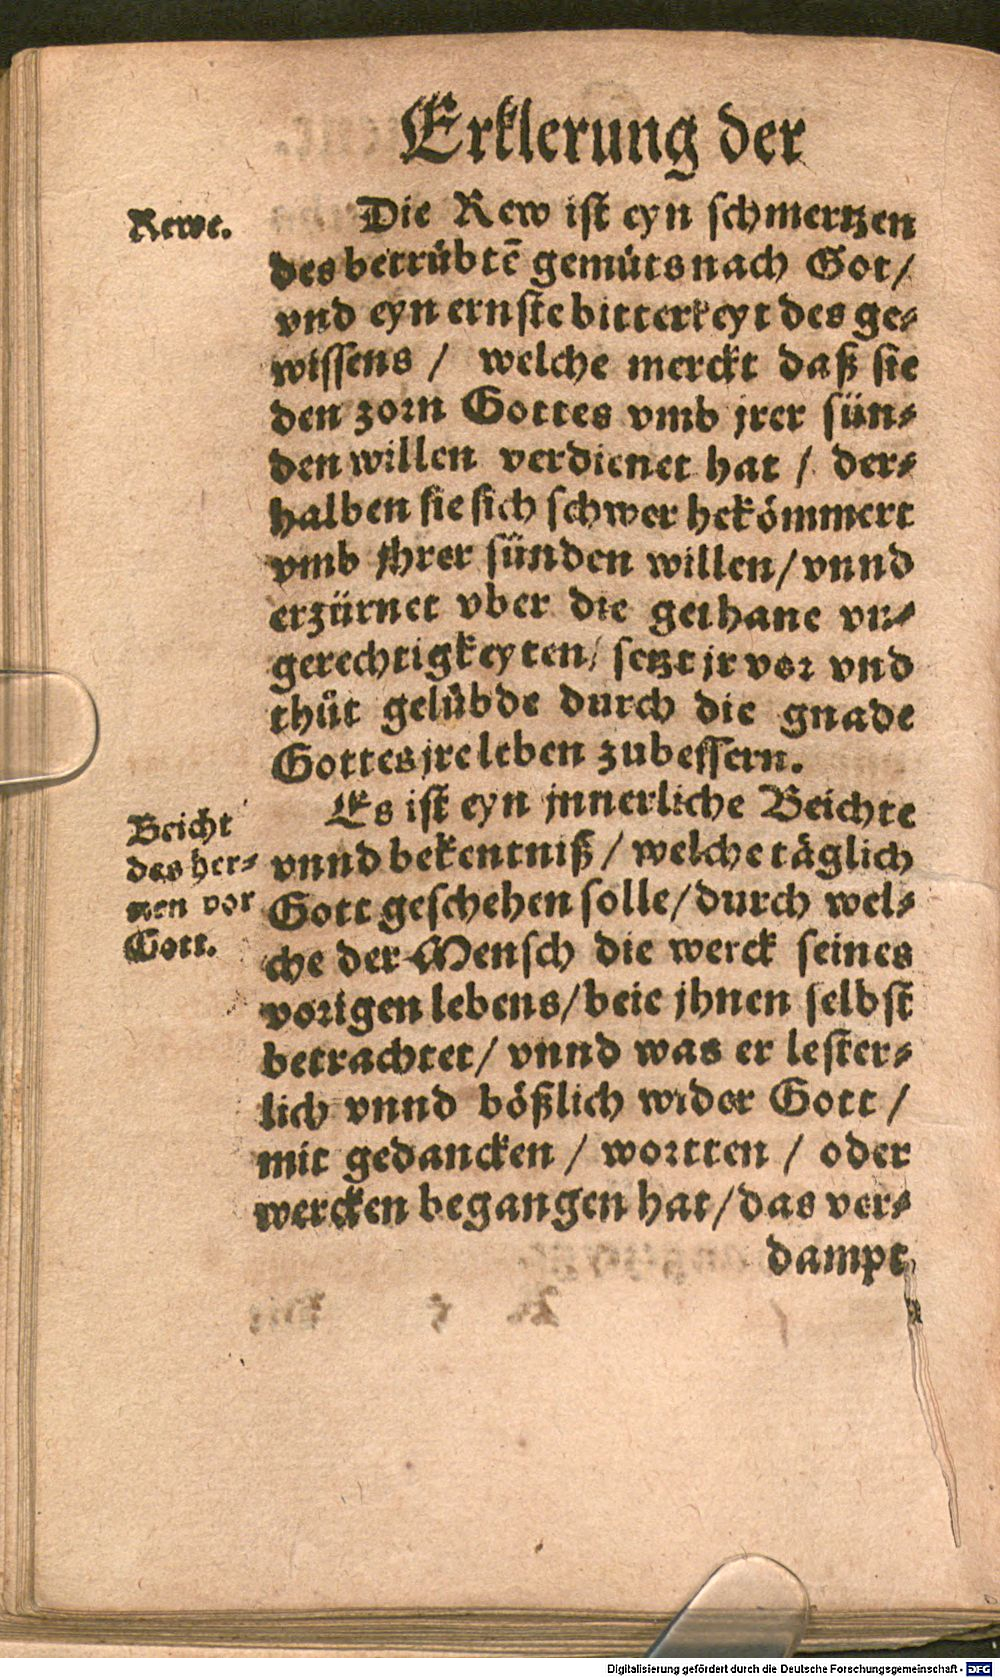 Erklerung der
Rewe.
Die Rew ist eyn schmertzen
des betrübtē gemüts nach Got/
vnd eyn ernste bitterkeyt des ge⸗
wissens / welche merckt daß sie
den zorn Gottes vmb jrer sün⸗
den willen verdienet hat / der⸗
halben sie sich schwer hekömmert
vmb jhrer sünden willen/ vnnd
erzürnet vber die gethane vn⸗
gerechtigkeyten/ setzt jr vor vnd
thůt gelübde durch die gnade
Gottes jre leben zubessern.
Beicht
des her⸗
tzen vor
Gott.
Es ist eyn jnnerliche Beichte
vnnd bekentniß / welche täglich
Gott geschehen solle/ durch wel⸗
che der Mensch die werck seines
vorigen lebens/ beie jhnen selbst
betrachtet/ vnnd was er lester⸗
lich vnnd bößlich wider Gott /
mit gedancken / wortten / oder
wercken begangen hat/ das ver⸗
dampt
Digitalisierung gefördert durch die Deutsche Forschungsgemeinschaft - DFG